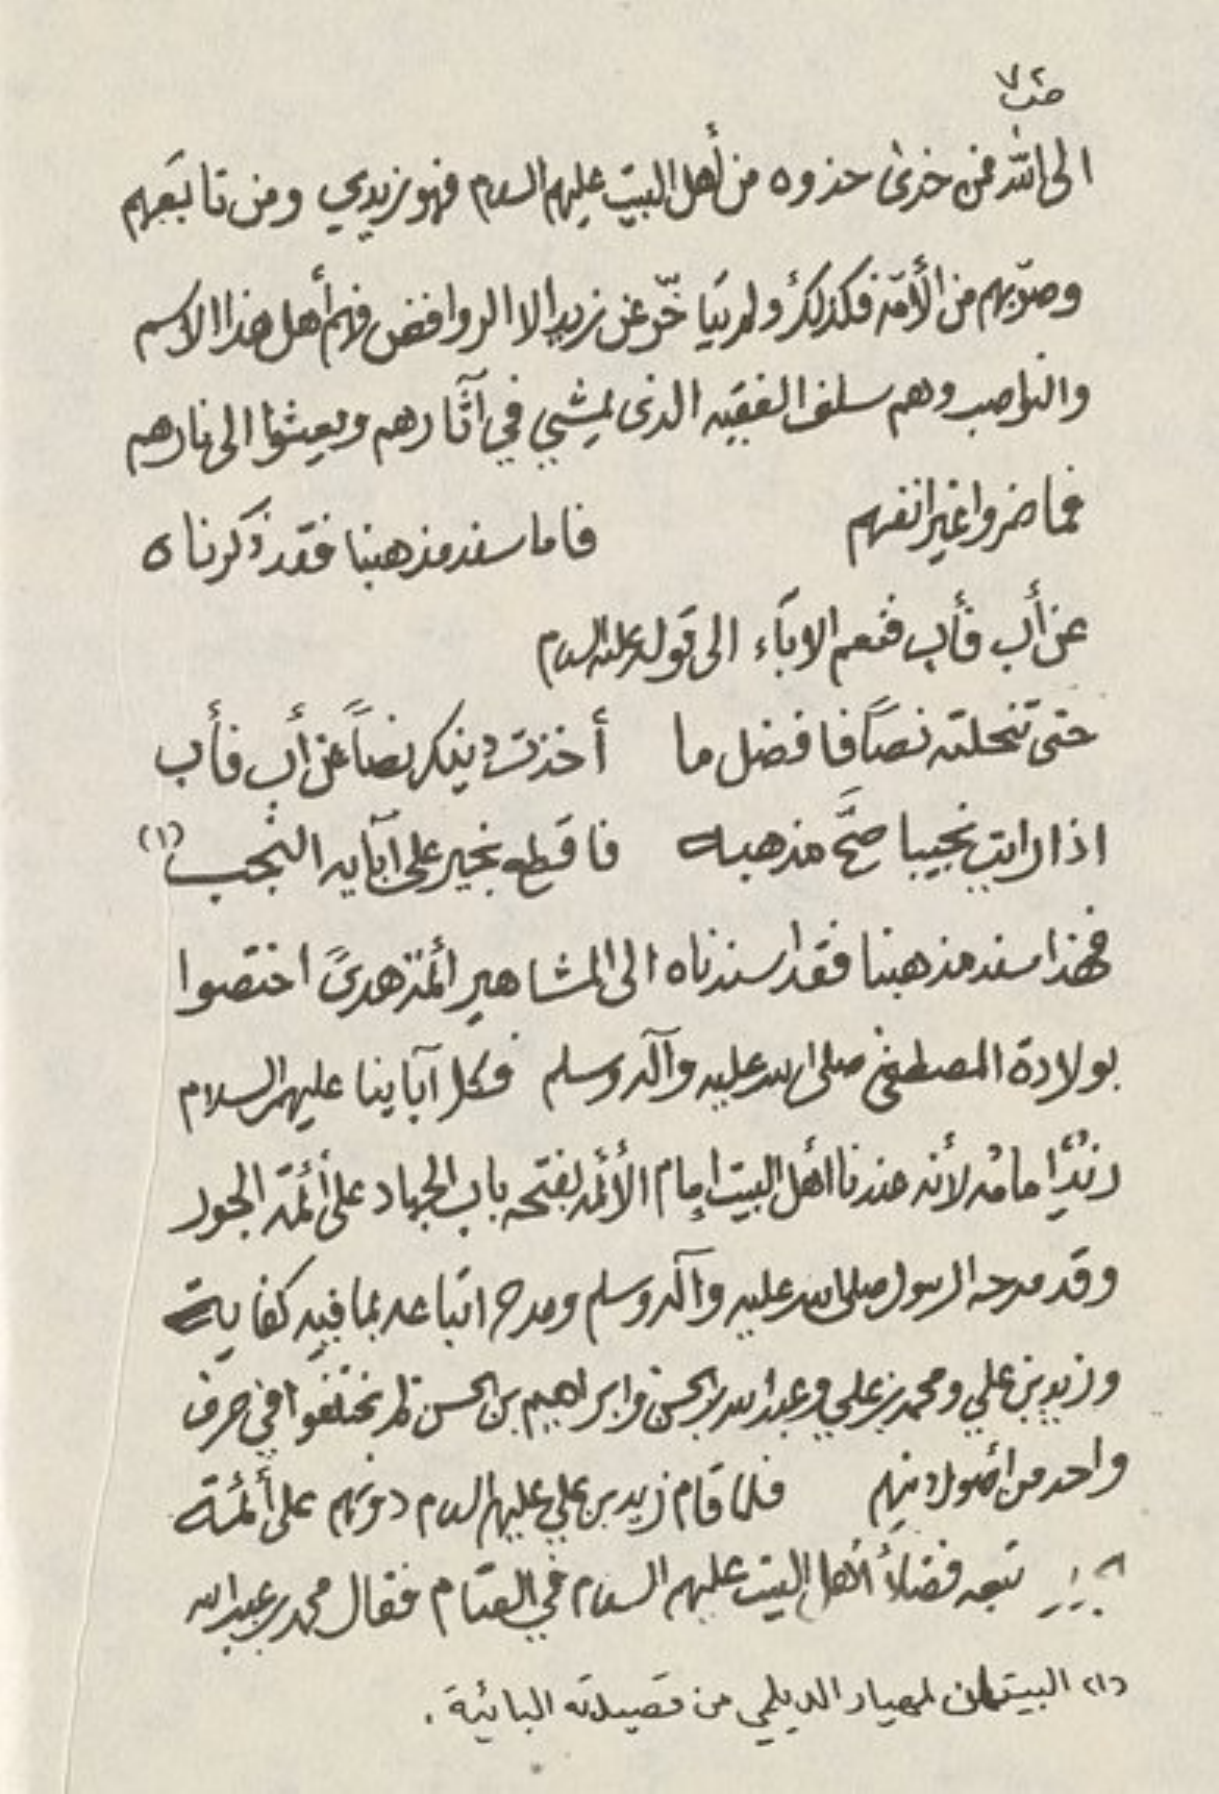 ص٧٢
الى الله فمن حذى حذوه من أهل البيت عليهم السلام فهو زيدي ومن تابعهم
وصوّبهم من الأمّة فكذلك ولم يتأخّر عن زيد الا الروافض فهم أهل هذا الاسم
والنواصب وهم سلف الفقيه الذى يمشي في آثارهم ويعشوا الى نارهم
فما ضروا غير انفسهم فاما سند مذهبنا فقد ذكرناه
عن أب فأب فنعم الاباء الى قوله عليه السلام
حتى تنحلته نصاً فافضل ما أخذت دينكر نصاً عن أب فأب
اذا رايت نجيبا صحَّ مذهبه فاقطع بخير على آبايه النجب (١)
فهذا سند مذهبنا فقد اسندناه الى المشاهير أئمة هدىً اختصوا
بولادة المصطفى صلى الله عليه وآله وسلم فكل آباينا عليهم السلام
زيديٌّ إمامه لأنه عندنا أهل البيت إمام الأئمه لفتحه باب الجهاد على أئمة الجور
وقد مدحه الرسول صلى الله عليه وآله وسلم ومدح اتباعه بما فيه كفاية
وزيد بن علي ومحمد بن علي وعبد الله بن الحسن وابراهيم بن الحسن لم يختلفوا في حرف
واحد من أصول دينهم فلما قام زيد بن علي عليهم السلام دونهم على أئمة
تبعه فضلاء أهل البيت عليهم السلام في القيام فقال محمد بن عبد الله
(١) البيتان لمهيار الديلمي من قصيدته البائية .